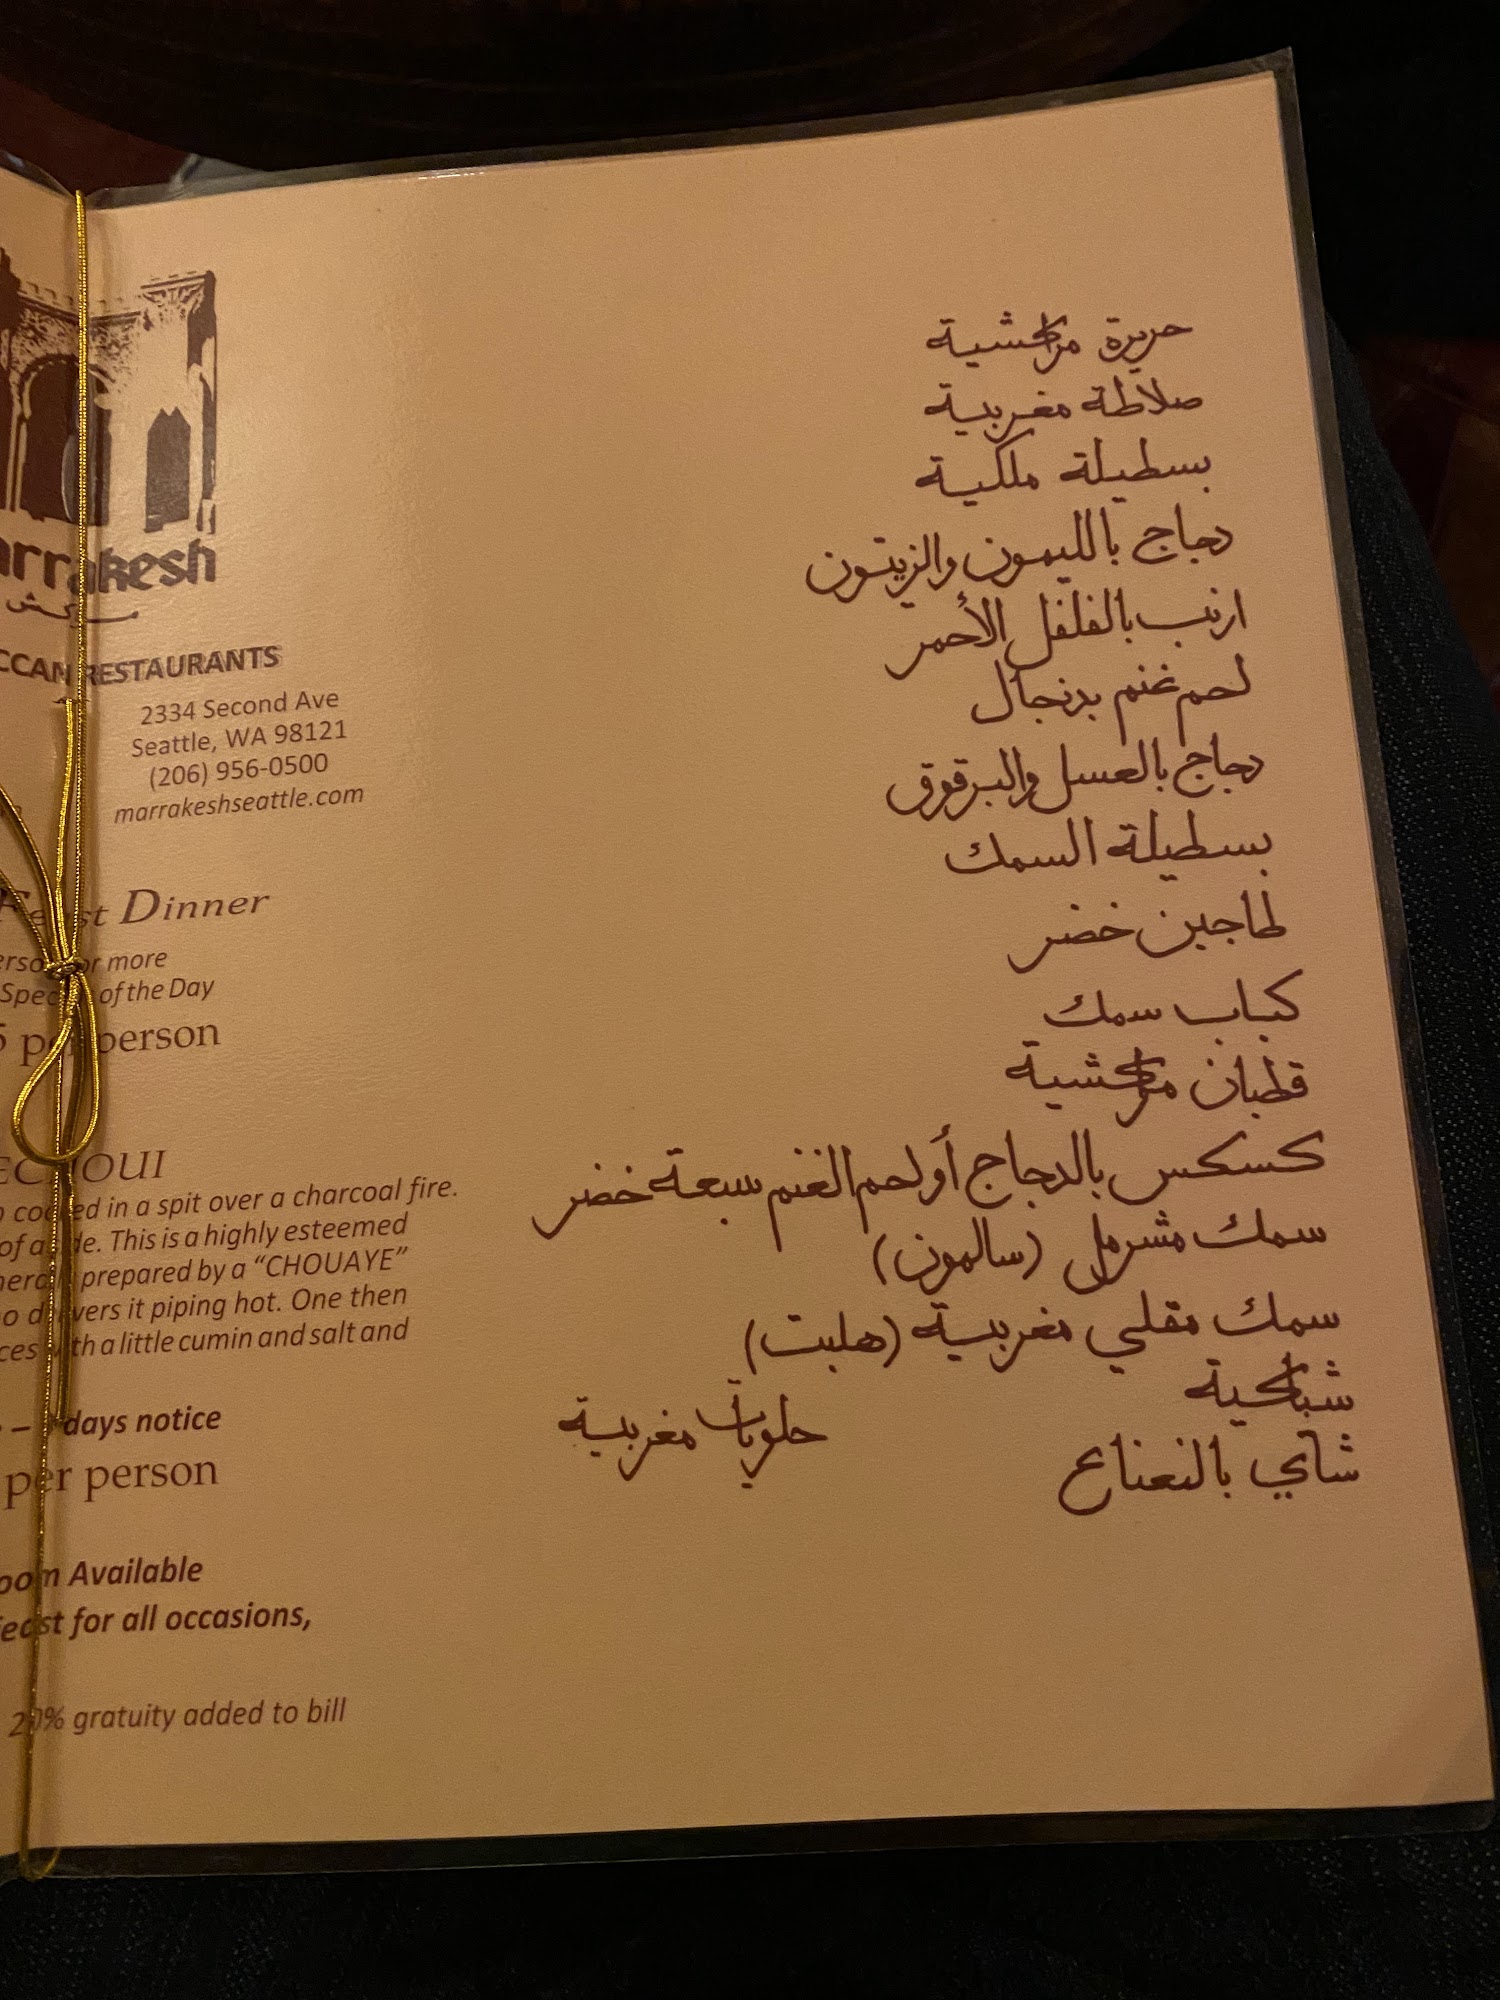 arrakesh
مراكش
CCAN RESTAURANTS
2334 Second Ave
Seattle, WA 98121
(206) 956-0500
marrakeshseattle.com
Feast Dinner
or more
of the Day
per person
ECHOUI
cooked in a spit over a charcoal fire.
of a side. This is a highly esteemed
prepared by a “CHOUAYE”
delivers it piping hot. One then
with a little cumin and salt and
– days notice
per person
oom Available
feast for all occasions,
20% gratuity added to bill
حريرة مراكشية
صلاطة مغربية
بسطيلة ملكية
دجاج بالليمون والزيتون
ارنب بالفلفل الأحمر
لحم غنم بدنجال
دجاج بالعسل والبرقوق
بسطيلة السمك
طاجين خضر
كباب سمك
قطبان مراكشية
كسكس بالدجاج أو لحم الغنم سبعة خضر
سمك مشرمل (سالمون)
سمك مقلي مغربية (هلبت)
شباكية
حلويات مغربية
شاي بالنعناع